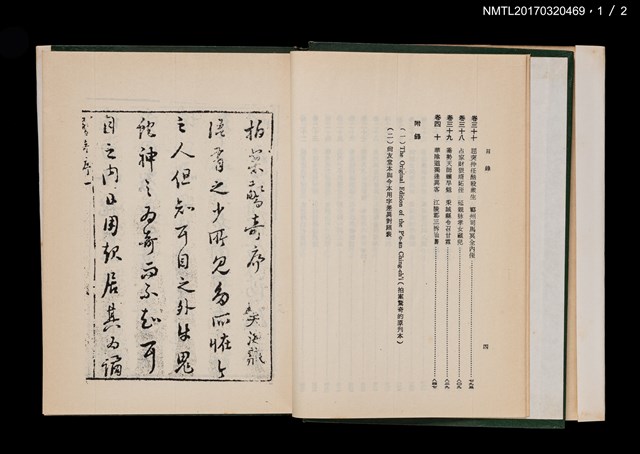 NMTL20170320469，1／2
目錄
卷三十七 屈突仲任酷殺衆生 鄆州司馬冥全內侄
卷三十八 占家財狠壻妬侄 延親脉孝女藏兒
卷三十九 喬勢天師禳旱魃 秉誠縣令召甘霖
卷四十 華陰道獨逢異客 江陵郡三拆仙書
附錄
（一）The Original Edition of the P'o-an Ching-ch'i（拍案驚奇的原刊本）
（二）尚友堂本與今本用字差異對照表
四
拍案驚奇序
語有之少所見多所怪今
之人但知耳目之外牛鬼
蛇神之為奇而不知耳
目之內日用起居其為譎